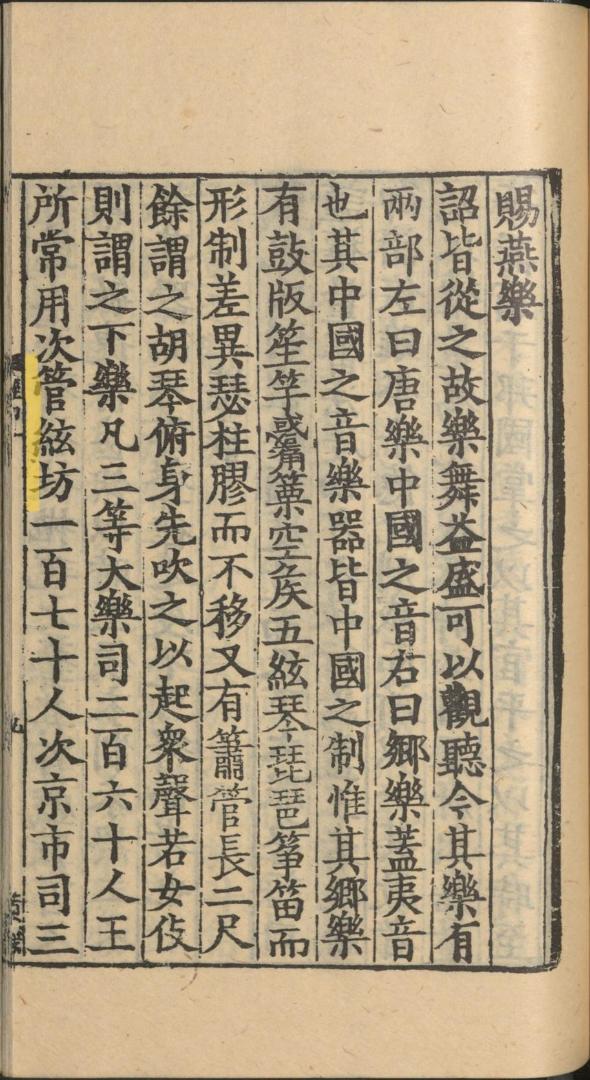 賜燕樂
詔皆從之故樂舞益盛可以觀聽今其樂有
兩部左曰唐樂中國之音右曰鄉樂蓋夷音
也其中國之音樂器皆中國之制惟其鄉樂
有鼓版笙竽觱篥空矦五絃琴琵琶箏笛而
形制差異瑟柱膠而不移又有簫管長二尺
餘謂之胡琴俯身先吹之以起衆聲若女伎
則謂之下樂凡三等大樂司二百六十人王
所常用次管絃坊一百七十人次京市司三